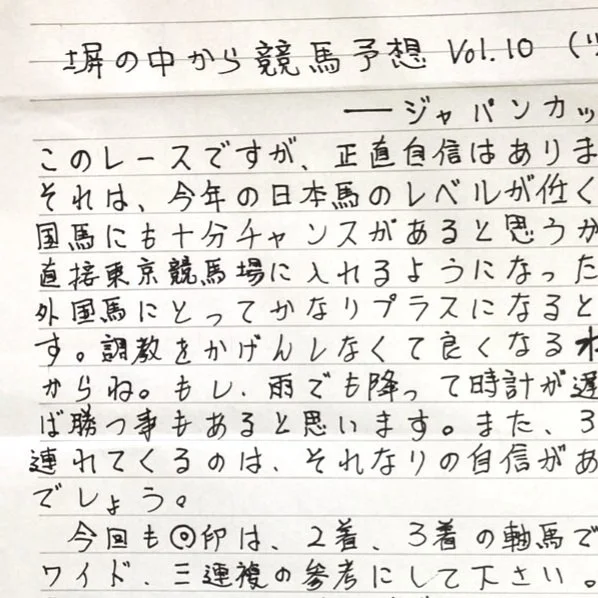 塀の中から競馬予想 Vol.10 (
― ジャパンカッ
このレースですが、正直自信はありま
それは、今年の日本馬のレベルが低く
国馬にも十分チャンスがあると思うか
直接東京競馬場に入れるようになった
外国馬にとってかなりプラスになると
す。調教をかげんしなくて良くなるわ
からね。もし、雨でも降って時計が遅
ば勝つ事もあると思います。また、3
連れてくるのは、それなりの自信があ
でしょう。
今回も◎印は、2着、3着の軸馬で
ワイド、三連複の参考にして下さい。